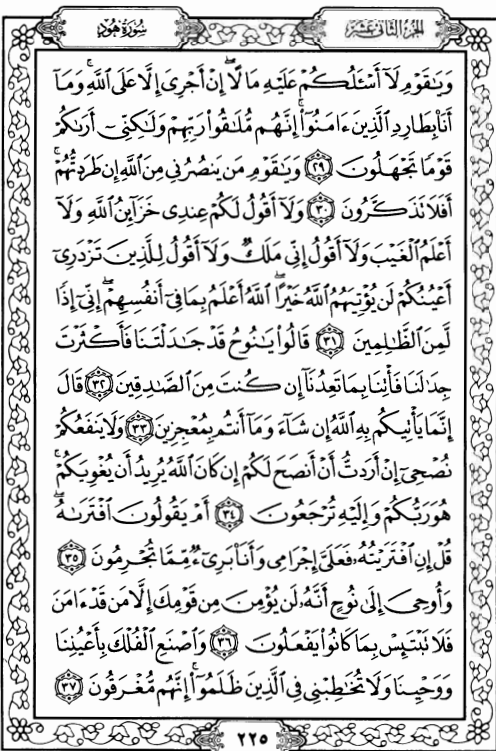 الجزء الثاني عشر
سورة هود
وَيَٰقَوْمِ لَآ أَسْـَٔلُكُمْ عَلَيْهِ مَالًا ۖ إِنْ أَجْرِىَ إِلَّا عَلَى ٱللَّهِ ۚ وَمَآ
أَنَا۠ بِطَارِدِ ٱلَّذِينَ ءَامَنُوٓا۟ ۚ إِنَّهُم مُّلَٰقُوا۟ رَبِّهِمْ وَلَٰكِنِّىٓ أَرَىٰكُمْ
قَوْمًا تَجْهَلُونَ ٢٩ وَيَٰقَوْمِ مَن يَنصُرُنِى مِنَ ٱللَّهِ إِن طَرَدتُّهُمْ ۚ
أَفَلَا تَذَكَّرُونَ ٣٠ وَلَآ أَقُولُ لَكُمْ عِندِى خَزَآئِنُ ٱللَّهِ وَلَآ
أَعْلَمُ ٱلْغَيْبَ وَلَآ أَقُولُ إِنِّى مَلَكٌ وَلَآ أَقُولُ لِلَّذِينَ تَزْدَرِىٓ
أَعْيُنُكُمْ لَن يُؤْتِيَهُمُ ٱللَّهُ خَيْرًا ۖ ٱللَّهُ أَعْلَمُ بِمَا فِىٓ أَنفُسِهِمْ ۖ إِنِّىٓ إِذًا
لَّمِنَ ٱلظَّٰلِمِينَ ٣١ قَالُوا۟ يَٰنُوحُ قَدْ جَٰدَلْتَنَا فَأَكْثَرْتَ
جِدَٰلَنَا فَأْتِنَا بِمَا تَعِدُنَآ إِن كُنتَ مِنَ ٱلصَّٰدِقِينَ ٣٢ قَالَ
إِنَّمَا يَأْتِيكُم بِهِ ٱللَّهُ إِن شَآءَ وَمَآ أَنتُم بِمُعْجِزِينَ ٣٣ وَلَا يَنفَعُكُمْ
نُصْحِىٓ إِنْ أَرَدتُّ أَنْ أَنصَحَ لَكُمْ إِن كَانَ ٱللَّهُ يُرِيدُ أَن يُغْوِيَكُمْ ۚ
هُوَ رَبُّكُمْ وَإِلَيْهِ تُرْجَعُونَ ٣٤ أَمْ يَقُولُونَ ٱفْتَرَىٰهُ ۖ
قُلْ إِنِ ٱفْتَرَيْتُهُۥ فَعَلَىَّ إِجْرَامِى وَأَنَا۠ بَرِىٓءٌ مِّمَّا تُجْرِمُونَ ٣٥
وَأُوحِىَ إِلَىٰ نُوحٍ أَنَّهُۥ لَن يُؤْمِنَ مِن قَوْمِكَ إِلَّا مَن قَدْ ءَامَنَ
فَلَا تَبْتَئِسْ بِمَا كَانُوا۟ يَفْعَلُونَ ٣٦ وَٱصْنَعِ ٱلْفُلْكَ بِأَعْيُنِنَا
وَوَحْيِنَا وَلَا تُخَٰطِبْنِى فِى ٱلَّذِينَ ظَلَمُوٓا۟ ۚ إِنَّهُم مُّغْرَقُونَ ٣٧
٢٢٥